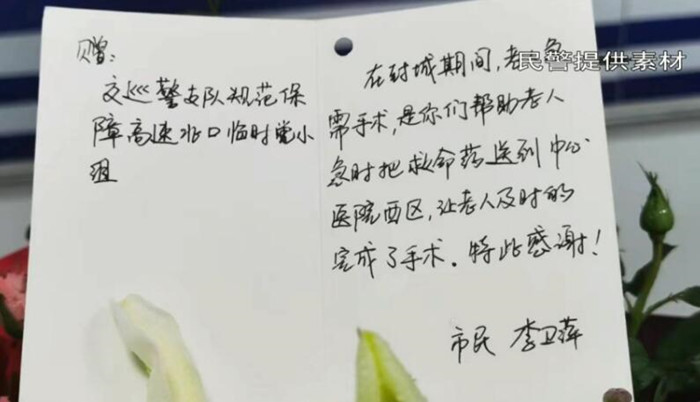 民警提供素材
赠：
交巡警支队规范保
障高速北口临时党小
组
在封城期间，老 急
需手术，是你们帮助老人
急时把救命药送到中心
医院西区，让老人及时的
完成了手术。特此感谢！
市民 李卫萍